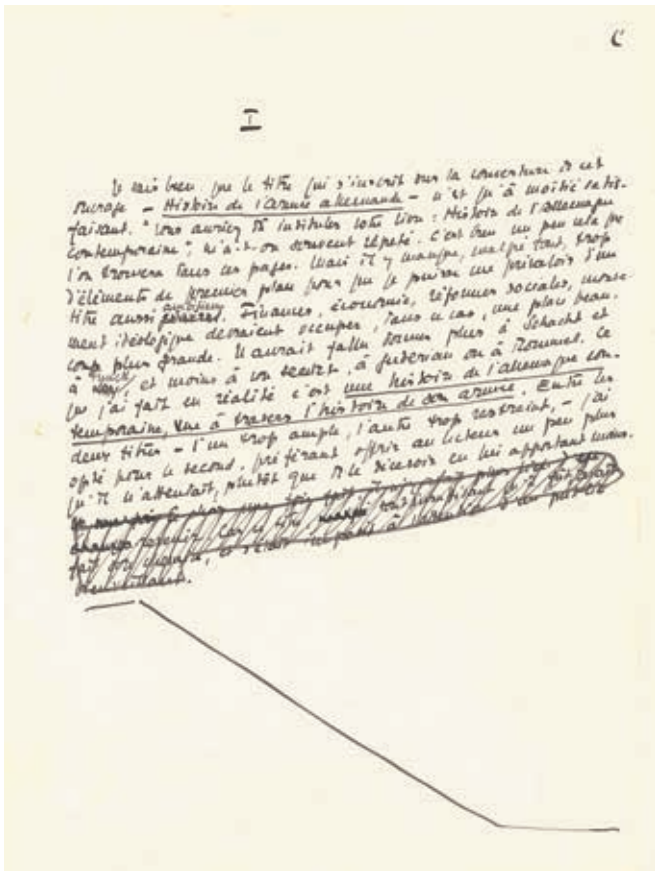 C
I
Je sais bien que le titre qui s'inscrit sur la couverture de cet
ouvrage – Histoire de l'armée allemande – n'est qu'à moitié satis-
faisant. "Vous auriez dû intituler votre livre : Histoire de l'Allemagne
contemporaine", m'a-t-on souvent répété. C'est bien un peu cela que
l'on trouvera dans ces pages. Mais il y manque, malgré tout, trop
d'éléments de premier plan pour que je puisse me prévaloir d'un
titre aussi ambitieux. Finances, économie, réformes sociales, mouve-
ment idéologique devraient occuper, dans ce cas, une place beau-
coup plus grande. Il aurait fallu donner plus à Schacht et
à et moins à von Seeckt, à Guderian ou à Rommel. Ce
que j'ai fait en réalité c'est une histoire de l'Allemagne con-
temporaine, vue à travers l'histoire de son armée. Entre les
deux titres – l'un trop ample, l'autre trop restreint, – j'ai
opté pour le second, préférant offrir au lecteur un peu plus
qu'il n'attendait, plutôt que de le décevoir en lui apportant moins.